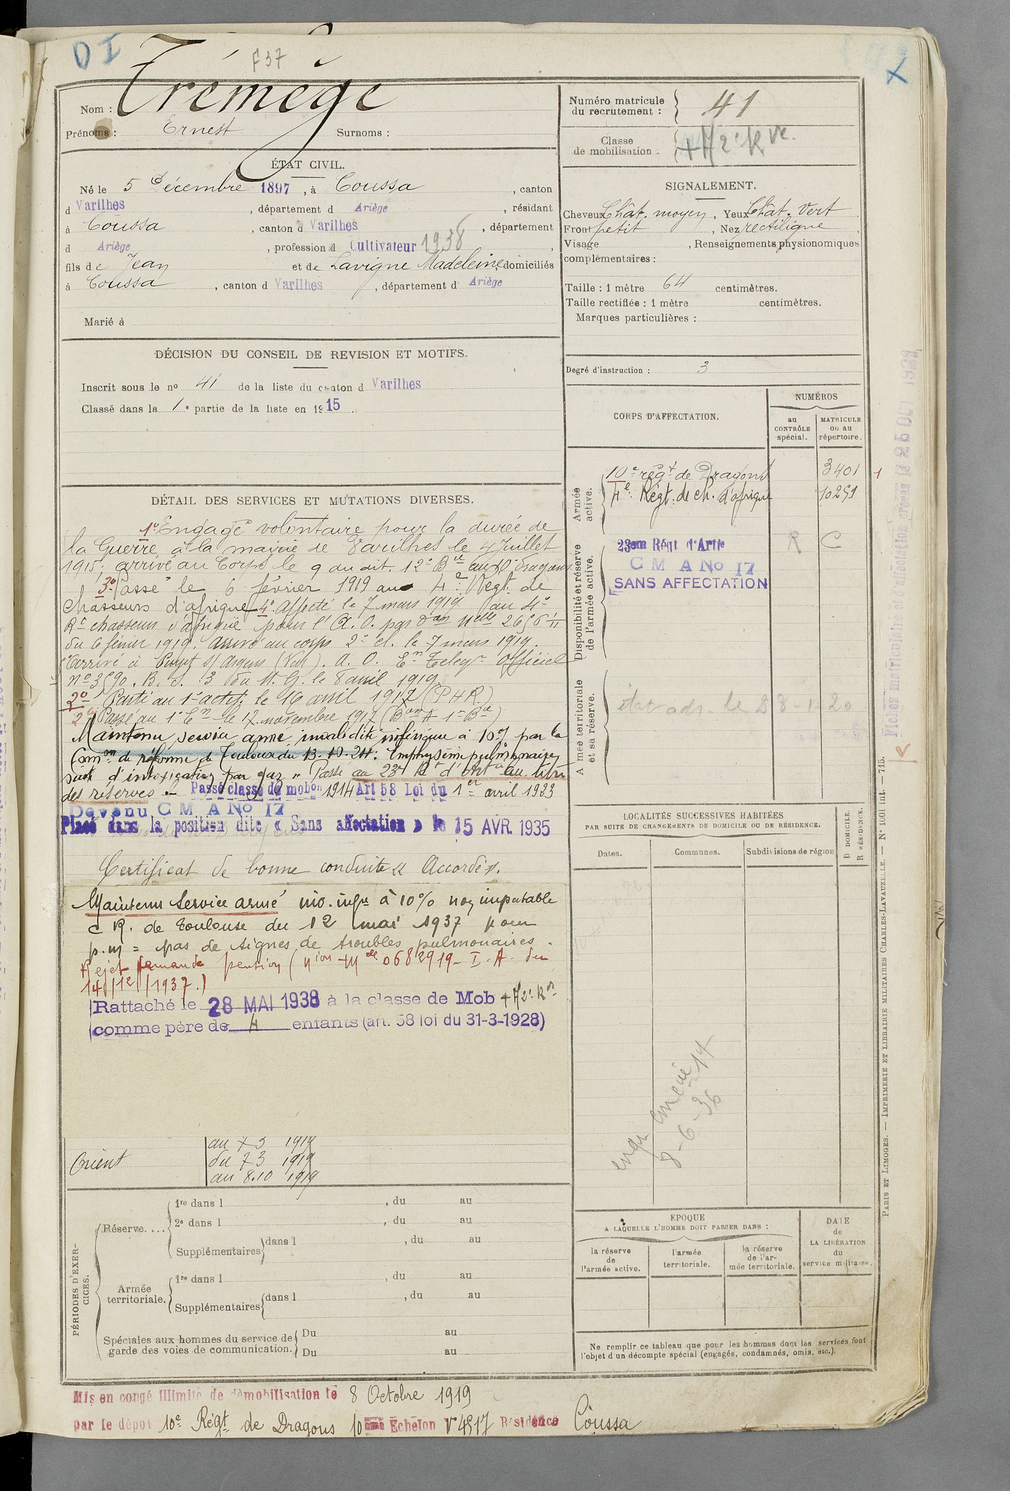 D I
F37
Nom : Trémège
Prénoms : Ernest Surnoms :
ÉTAT CIVIL.
Né le 5 Décembre 1897, à Coussa, canton
d Varilhes, département d Ariège, résidant
à Coussa, canton d Varilhes, département
d Ariège, profession d Cultivateur 1938,
fils de Jean et de Lavigne Madeleine, domiciliés
à Coussa, canton d Varilhes, département d Ariège
Marié à
DÉCISION DU CONSEIL DE REVISION ET MOTIFS.
Inscrit sous le nº 41 de la liste du canton d Varilhes
Classé dans la 1re partie de la liste en 1915.
DÉTAIL DES SERVICES ET MUTATIONS DIVERSES.
1º Engagé volontaire pour la durée de
la Guerre, à la mairie de Varilhes le 4 Juillet
1915, arrivé au Corps le 9 du dit. 12e
3º Passé le 6 février 1919 au 4e Regt. de
Chasseurs d'afrique 4º Affecté le 7 mars 1919 au 4e
Rt chasseurs d'afrique pour l'A. O. par
du 6 février 1919. Arrivé au corps 2e cl. le 7 mars 1919.
Arrivé à Puget s/ Argens (Var). A. O. officiel
nº 3590. B. S. 3 du M. G. le 8 avril 1919
2º Parti au 1er actif le 16 avril 1917 (P H R)
Passé au 1er le 12 novembre 1917
Maintenu service armé invalidité inférieure à 10% par la
Comon de réforme de Toulouse du 13-10-24. Emphysème pulmonaire,
suite d'intoxication par gaz » Passé au 23e Rt d'Artie au titre
des réserves .- Passé classe de mobon 1914 Art 58 Loi du 1er avril 1923
Devenu C M A No 17
Placé dans la position dite « Sans affectation » le 15 AVR. 1935
Certificat de bonne conduite « Accordé ».
Maintenu Service armé inv. infre à 10% non imputable
C R. de Toulouse du 12 mai 1937 pour
p.m = pas de signes de troubles pulmonaires.
Rejet demande pension (
14/12/1937.)
Rattaché le 28 MAI 1938 à la classe de Mob
comme père de 4 enfants (art. 58 loi du 31-3-1928)
au 7 3 1919
Orient du 7 3 1919
au 8.10 1919
PÉRIODES D'EXERCICES.
Réserve....
1re dans l , du au
2e dans l , du au
Supplémentaires dans l , du au
Armée territoriale.
1re dans l , du au
Supplémentaires dans l , du au
Spéciales aux hommes du service de garde des voies de communication.
Du au
Du au
Mis en congé illimité de démobilisation le 8 Octobre 1919
par le dépôt 10e Régt de Dragons 10ème Echelon Nº 4517 Résidence Coussa
Numéro matricule du recrutement : 41
Classe de mobilisation.
SIGNALEMENT.
Cheveux Chât. moyen, Yeux Chât. vert
Front petit, Nez rectiligne,
Visage , Renseignements physionomiques
complémentaires :
Taille : 1 mètre 64 centimètres.
Taille rectifiée : 1 mètre centimètres.
Marques particulières :
Degré d'instruction : 3
CORPS D'AFFECTATION.
NUMÉROS
au CONTRÔLE spécial.
MATRICULE ou au répertoire.
Armée active.
10e régt de Dragons 3401
4e Régt. de ch. d'afrique 10251
Disponibilité et réserve de l'armée active.
23em Régt d'Artie R C
C M A No 17
SANS AFFECTATION
Armée territoriale et sa réserve.
LOCALITÉS SUCCESSIVES HABITÉES
PAR SUITE DE CHANGEMENTS DE DOMICILE OU DE RÉSIDENCE.
Dates. Communes. Subdivisions de région
D DOMICILE.
R RÉSIDENCE.
8-6-36
EPOQUE
A LAQUELLE L'HOMME DOIT PASSER DANS :
la réserve de l'armée active.
l'armée territoriale.
la réserve de l'armée territoriale.
DATE de LA LIBÉRATION du service militaire.
Ne remplir ce tableau que pour les hommes dont les services font
l'objet d'un décompte spécial (engagés, condamnés, omis, etc.).
PARIS ET LIMOGES. — IMPRIMERIE ET LIBRAIRIE MILITAIRES CHARLES-LAVAUZELLE. — Nº 1601 int. — 715.